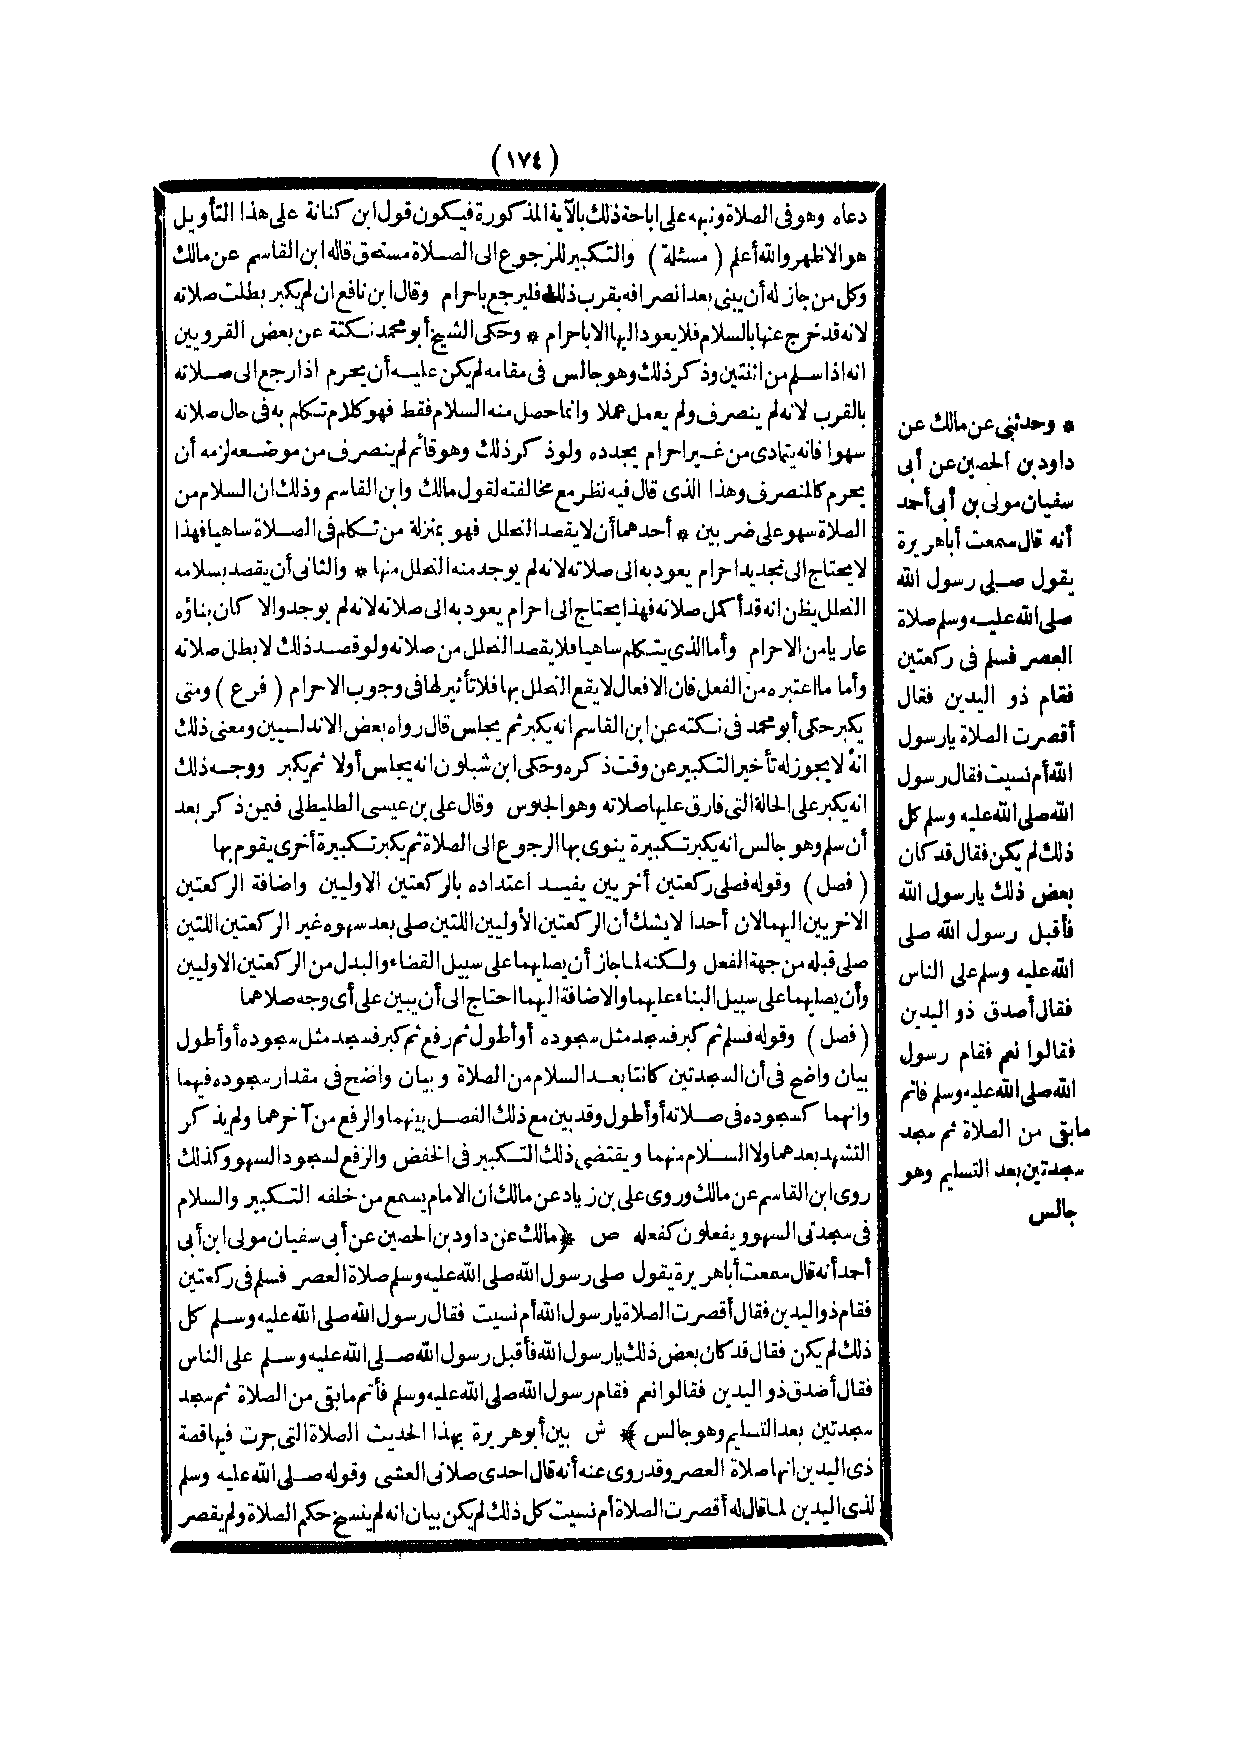 (١٧٤)
دعاه وهو فى الصلاة ونبه على اباحة ذلك بالآية المذكورة فيكون قول ابن كنانة على هذا التأويل
هو الاظهر والله أعلم (مسئلة) والتكبير للرجوع الى الصلاة مستحق قاله ابن القاسم عن مالك
وكل من جاز له أن يبنى بعد انصرافه بقرب ذلك فليرجع باحرام وقال ابن نافع ان لم يكبر بطلت صلاته
لانه قد خرج عنها بالسلام فلا يعود اليها الا باحرام * وحكى الشيخ أبو محمد نكتة عن بعض القرويين
انه اذا سلم من اثنتين وذكر ذلك وهو جالس فى مقامه لم يكن عليه أن يحرم اذا رجع الى صلاته
بالقرب لانه لم ينصرف ولم يعمل عملا وانما حصل منه السلام فقط فهو كلام تكلم به فى حال صلاته
سهوا فانه يتمادى من غير احرام يجدده ولو ذكر ذلك وهو قائم لم ينصرف من موضعه لزمه أن
يحرم كالمنصرف وهذا الذى قال فيه نظر مع مخالفته لقول مالك وابن القاسم وذلك ان السلام من
الصلاة سهو على ضربين * أحدهما أن لا يقصد التحلل فهو بمنزلة من تكلم فى الصلاة ساهيا فهذا
لا يحتاج الى تجديد احرام يعود به الى صلاته لانه لم يوجد منه التحلل منها * والثانى أن يقصد بسلامه
التحلل يظن انه قد أكمل صلاته فهذا يحتاج الى احرام يعود به الى صلاته لانه لم يوجد والا كان بناؤه
عاريا من الاحرام وأما الذى يتكلم ساهيا فلا يقصد التحلل من صلاته ولو قصد ذلك لا بطل صلاته
وأما ما اعتبره من الفعل فان الافعال لا يقع التحلل بها فلا تأثير لها فى وجوب الاحرام (فرع) ومتى
يكبر حكى أبو محمد فى نكته عن ابن القاسم انه يكبر ثم يجلس قال رواه بعض الاندلسيين ومعنى ذلك
انه لا يجوز له تأخير التكبير عن وقت ذكره وحكى ابن شبلون انه يجلس أولا ثم يكبر ووجه ذلك
انه يكبر على الحالة التى فارق عليها صلاته وهو الجلوس وقال على بن عيسى الطليطلى فيمن ذكر بعد
أن سلم وهو جالس انه يكبر تكبيرة ينوى بها الرجوع الى الصلاة ثم يكبر تكبيرة أخرى يقوم بها
(فصل) وقوله فصلى ركعتين أخريين يفيد اعتداده بالركعتين الاوليين واضافة الركعتين
الاخريين اليهما لان أحدا لا يشك أن الركعتين الأوليين اللتين صلى بعد سهوه غير الركعتين اللتين
صلى قبله من جهة الفعل ولكنه لما جاز أن يصليهما على سبيل القضاء والبدل من الركعتين الاوليين
وأن يصليهما على سبيل البناء عليهما والاضافة اليهما احتاج الى أن يبين على أى وجه صلاهما
(فصل) وقوله فسلم ثم كبر فسجد مثل سجوده أو أطول ثم رفع ثم كبر فسجد مثل سجوده أو أطول
بيان واضح فى أن السجدتين كانتا بعد السلام من الصلاة وبيان واضح فى مقدار سجوده فيهما
وانهما كسجوده فى صلاته أو أطول وقد بين مع ذلك الفصل بينهما والرفع من آخرهما ولم يذكر
التشهد بعدهما ولا السلام منهما ويقتضى ذلك التكبير فى الخفض والرفع لسجود السهو وكذلك
روى ابن القاسم عن مالك وروى على بن زياد عن مالك ان الامام يسمع من خلفه التكبير والسلام
فى سجدتى السهو ويفعلون كفعله ص ﴿ مالك عن داود بن الحصين عن أبى سفيان مولى ابن أبى
أحد أنه قال سمعت أبا هريرة يقول صلى رسول الله صلى الله عليه وسلم صلاة العصر فسلم فى ركعتين
فقام ذو اليدين فقال أقصرت الصلاة يا رسول الله أم نسيت فقال رسول الله صلى الله عليه وسلم كل
ذلك لم يكن فقال قد كان بعض ذلك يا رسول الله فأقبل رسول الله صلى الله عليه وسلم على الناس
فقال أصدق ذو اليدين فقالوا نعم فقام رسول الله صلى الله عليه وسلم فأتم ما بقى من الصلاة ثم سجد
سجدتين بعد التسليم وهو جالس ﴾ ش بين أبو هريرة بهذا الحديث الصلاة التى جرت فيها قصة
ذى اليدين انها صلاة العصر وقد روى عنه أنه قال احدى صلاتى العشى وقوله صلى الله عليه وسلم
لذى اليدين لما قال له أقصرت الصلاة أم نسيت كل ذلك لم يكن بيان انه لم ينسخ حكم الصلاة ولم يقصر
* وحدثنى عن مالك عن
داود بن الحصين عن أبى
سفيان مولى بن أبى أحد
أنه قال سمعت أبا هريرة
يقول صلى رسول الله
صلى الله عليه وسلم صلاة
العصر فسلم فى ركعتين
فقام ذو اليدين فقال
أقصرت الصلاة يا رسول
الله أم نسيت فقال رسول
الله صلى الله عليه وسلم كل
ذلك لم يكن فقال قد كان
بعض ذلك يا رسول الله
فأقبل رسول الله صلى
الله عليه وسلم على الناس
فقال أصدق ذو اليدين
فقالوا نعم فقام رسول
الله صلى الله عليه وسلم فاتم
مابقى من الصلاة ثم سجد
سجدتين بعد التسليم وهو
جالس